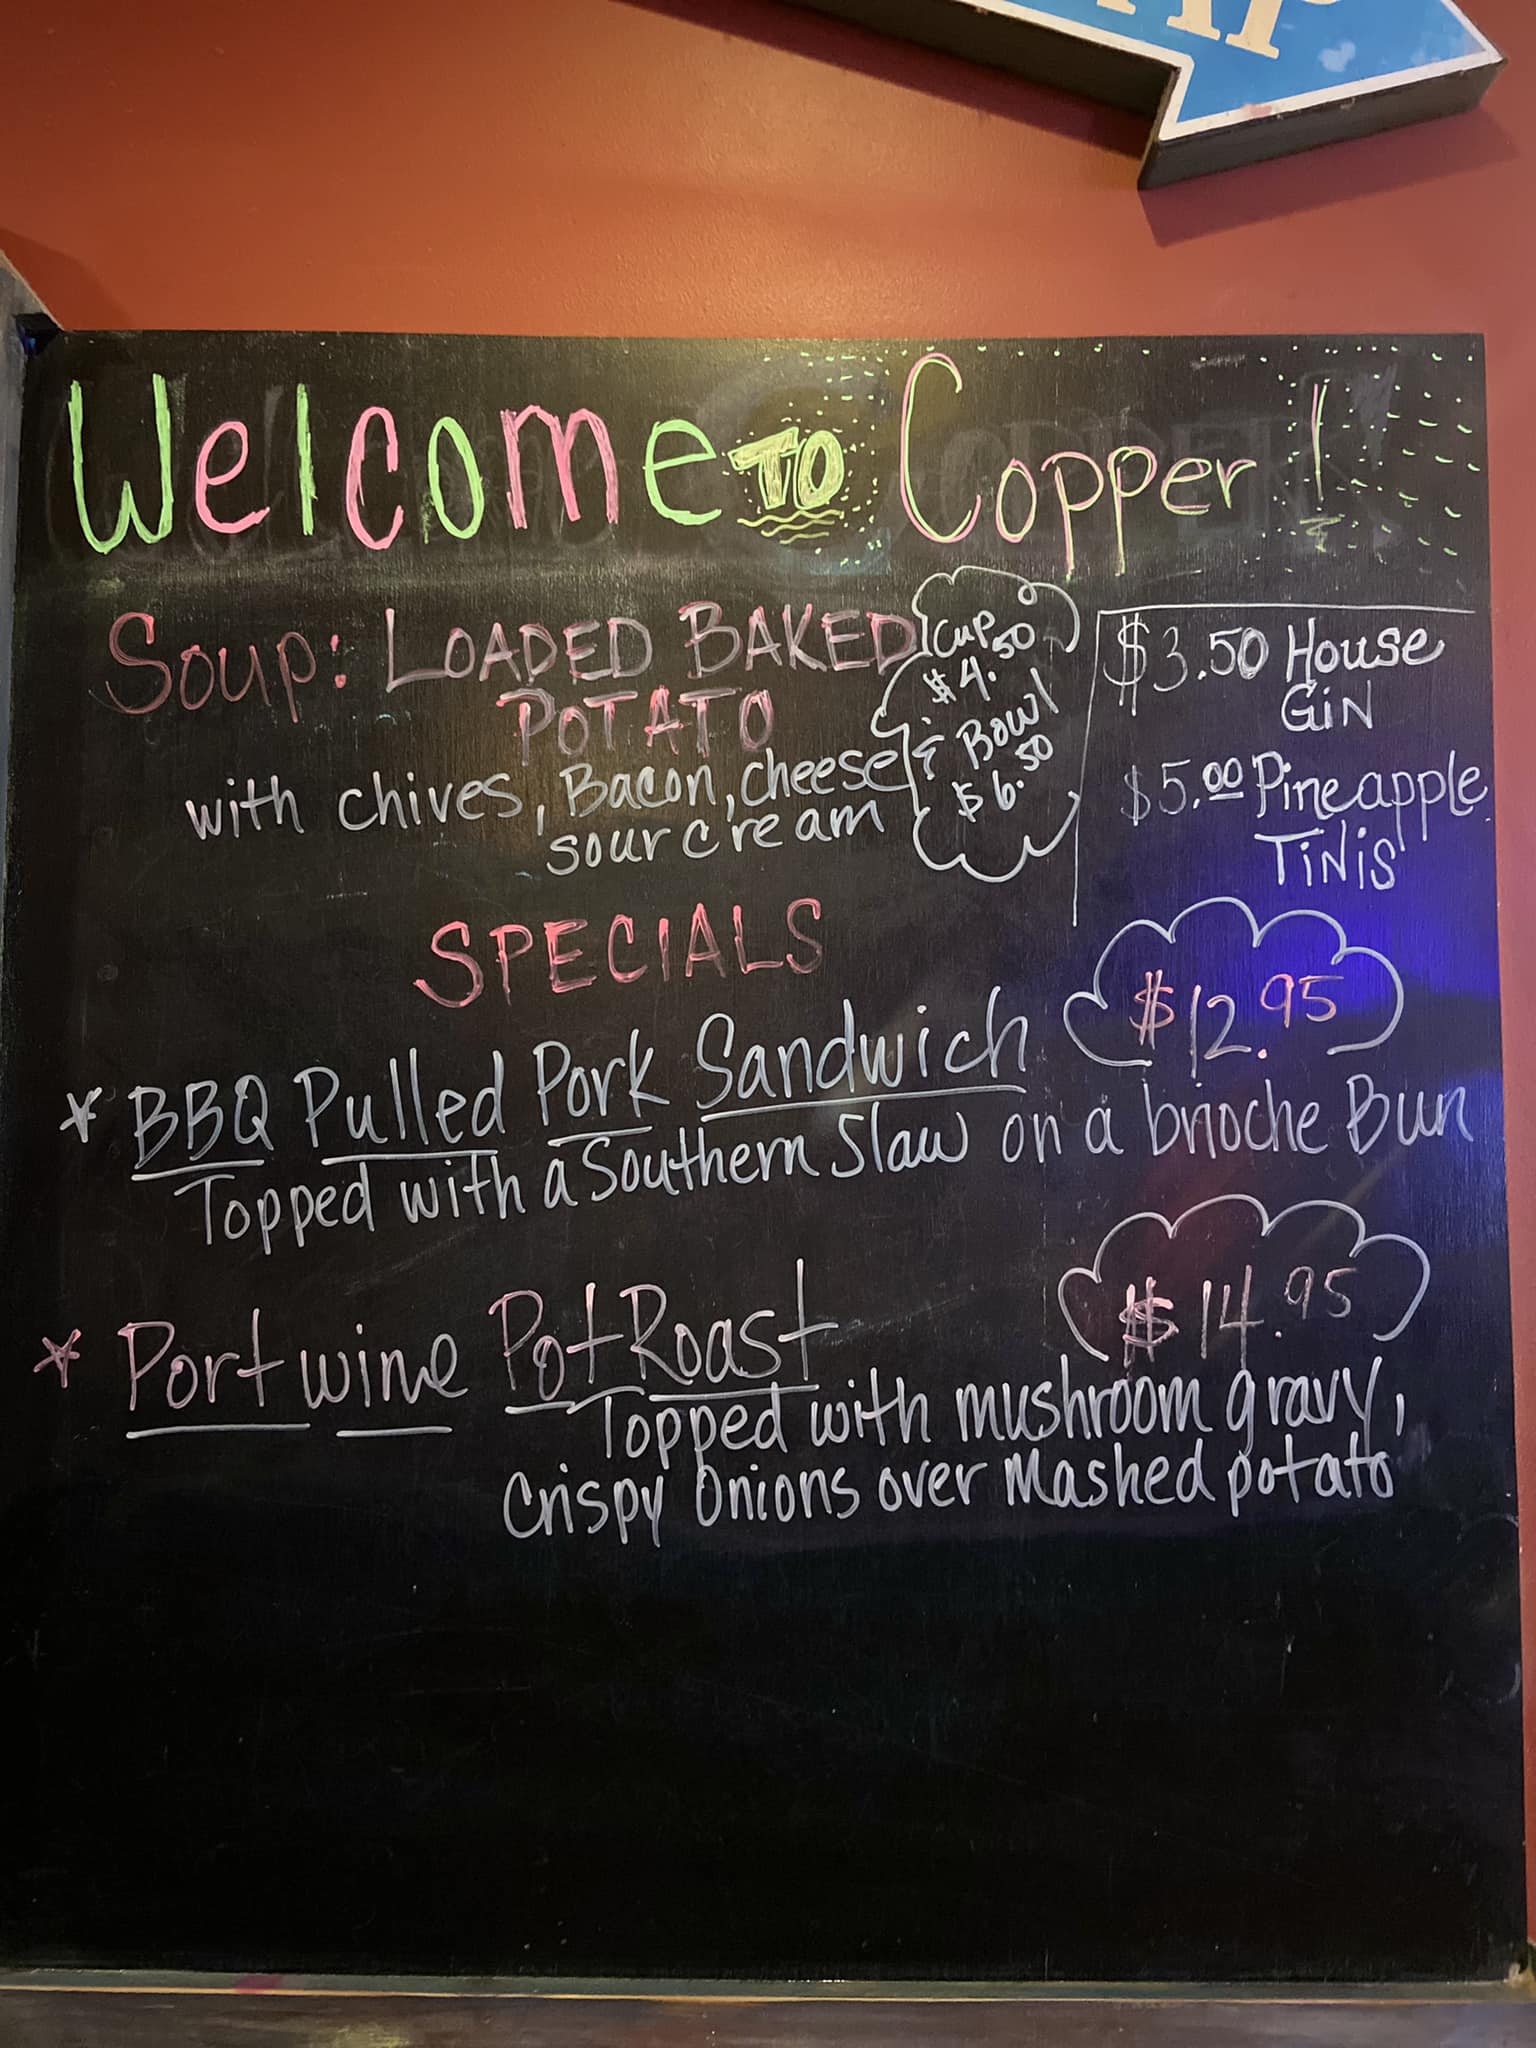 Welcome TO Copper!
Soup: LOADED BAKED
POTATO
with chives, Bacon, cheese
sour cream
Cup
$4.50
& Bowl
$6.50
$3.50 House
GiN
$5.00 Pineapple
TiNis
SPECIALS
* BBQ Pulled Pork Sandwich $12.95
Topped with a Southern Slaw on a brioche Bun
* Port wine Pot Roast $14.95
Topped with mushroom gravy,
Crispy Onions over Mashed potato